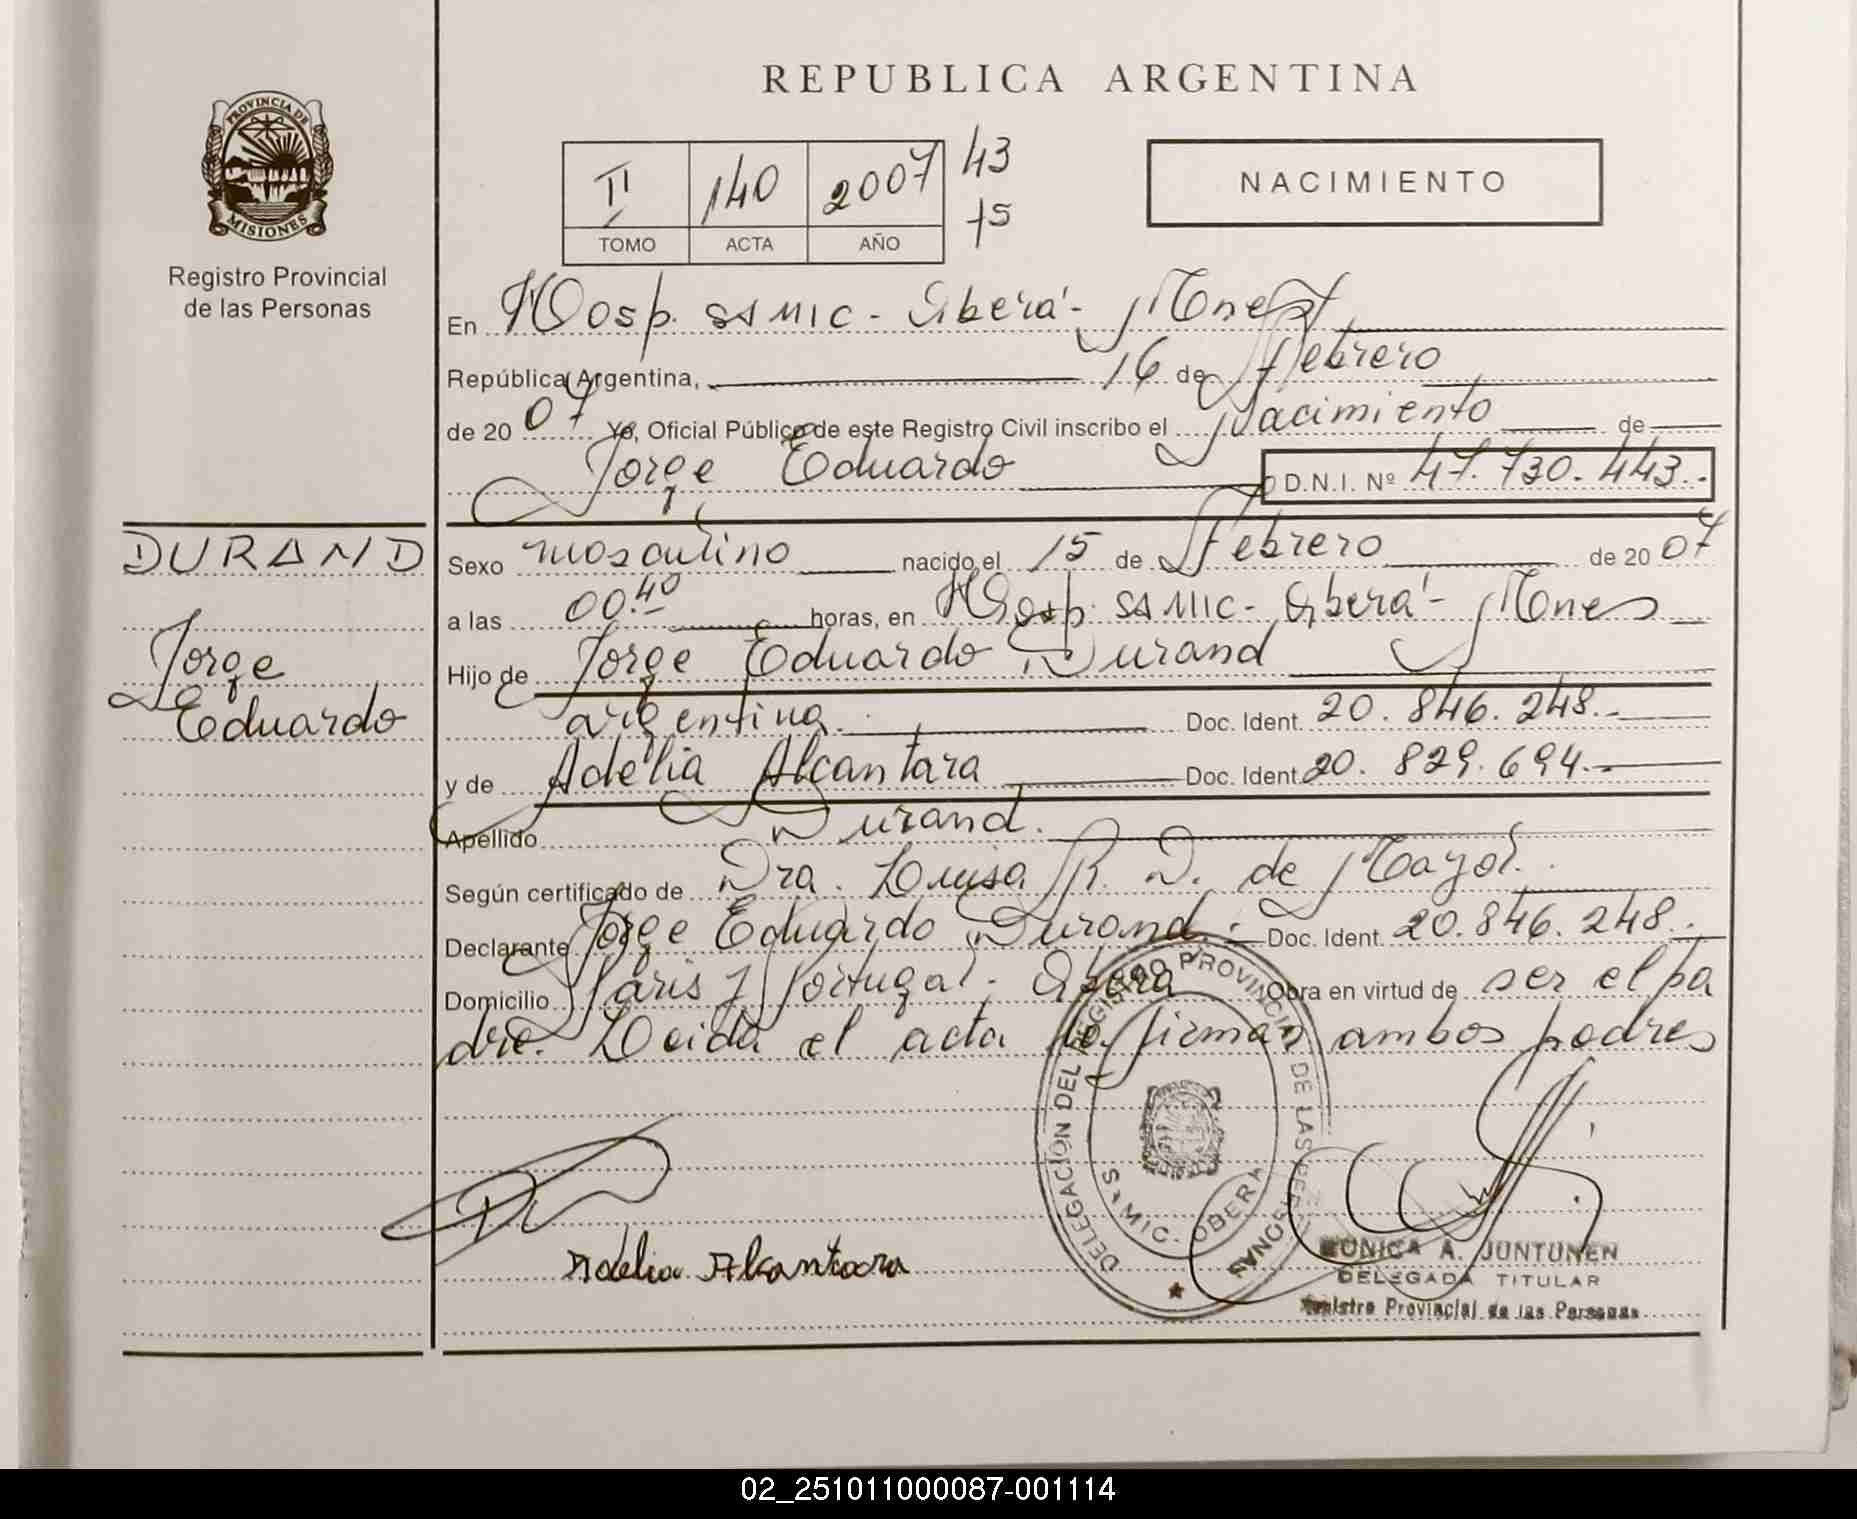 REPUBLICA ARGENTINA
PROVINCIA DE
MISIONES
Registro Provincial
de las Personas
II 140 2007 43
TOMO ACTA AÑO 75
NACIMIENTO
En Hosp. SAMIC - Oberá - Mnes
República Argentina, 16 de Febrero
de 20 07 Yo, Oficial Público de este Registro Civil inscribo el Nacimiento de
Jorge Eduardo D.N.I. Nº 47.730.443.-
DURAND
Jorge
Eduardo
Sexo masculino nacido el 15 de Febrero de 20 07
a las 00.40 horas, en Hosp. SAMIC - Oberá - Mones
Hijo de Jorge Eduardo Durand
argentina. Doc. Ident. 20.846.248.-
y de Adelia Alcantara Doc. Ident. 20.829.694.-
Apellido Durand.
Según certificado de Dra. Luisa R. D. de Mayol.
Declarante Jorge Eduardo Durand.- Doc. Ident. 20.846.248.-
Domicilio Paris y Portugal - Oberá Obra en virtud de ser el pa
dre. Leida el acta la firman ambos padres
DELEGACIÓN DEL REGISTRO PROVINCIAL DE LAS PERSONAS
SAMIC - OBERA
Adelia Alcantara
MONICA A. JUNTUNEN
DELEGADA TITULAR
Registro Provincial de las Personas
02_251011000087-001114